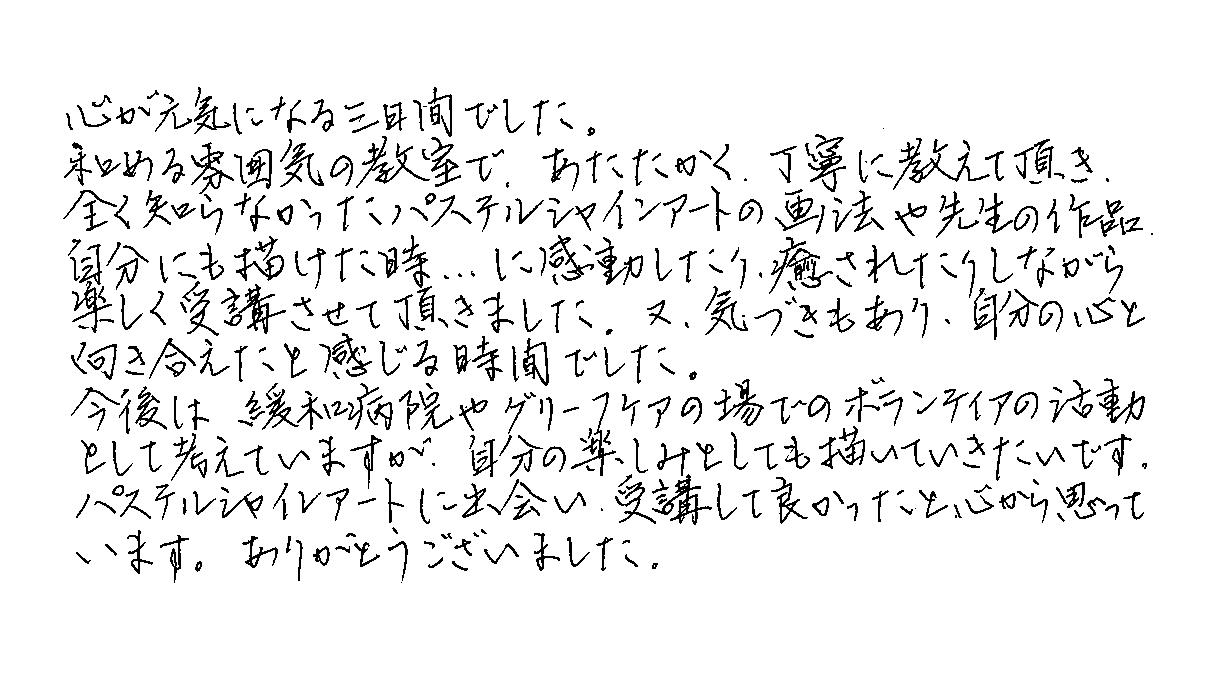 心が元気になる三日間でした。
和める雰囲気の教室で、あたたかく、丁寧に教えて頂き、
全く知らなかったパステルシャインアートの画法や先生の作品、
自分にも描けた時…に感動したり、癒されたりしながら
楽しく受講させて頂きました。又、気づきもあり、自分の心と
向き合えたと感じる時間でした。
今後は、緩和病院やグリーフケアの場でのボランティアの活動
として考えていますが、自分の楽しみとしても描いていきたいです。
パステルシャインアートに出会い、受講して良かったと、心から思って
います。ありがとうございました。